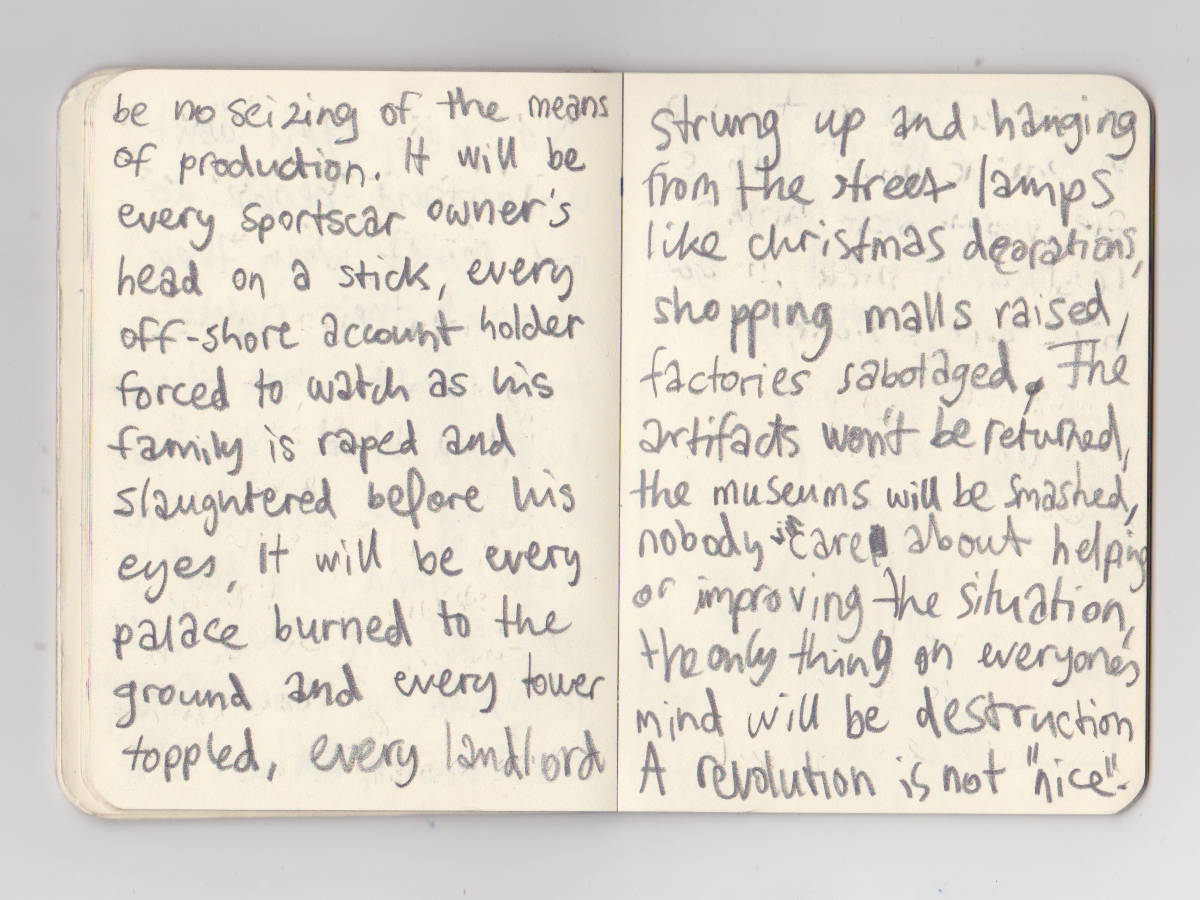 be no seizing of the means
of production. It will be
every sportscar owner's
head on a stick, every
off-shore account holder
forced to watch as his
family is raped and
slaughtered before his
eyes, It will be every
palace burned to the
ground and every tower
toppled, every landlord
strung up and hanging
from the street lamps
like christmas decorations,
shopping malls raised,
factories sabotaged, The
artifacts won't be returned,
the museums will be smashed,
nobody care about helping
or improving the situation,
the only thing on everyone's
mind will be destruction
A revolution is not "nice".